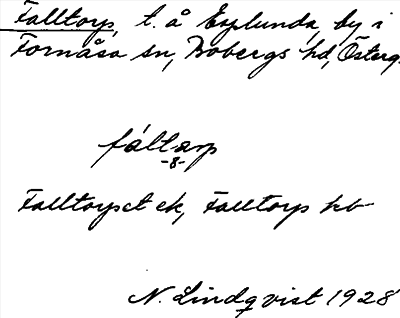 Falltorp, t. å Esplunda, by i
Fornåsa sn, Bobergs hd, Österg.
fáltarp
-8-
Falltorpet ek, Falltorp kb
N. Lindqvist 1928